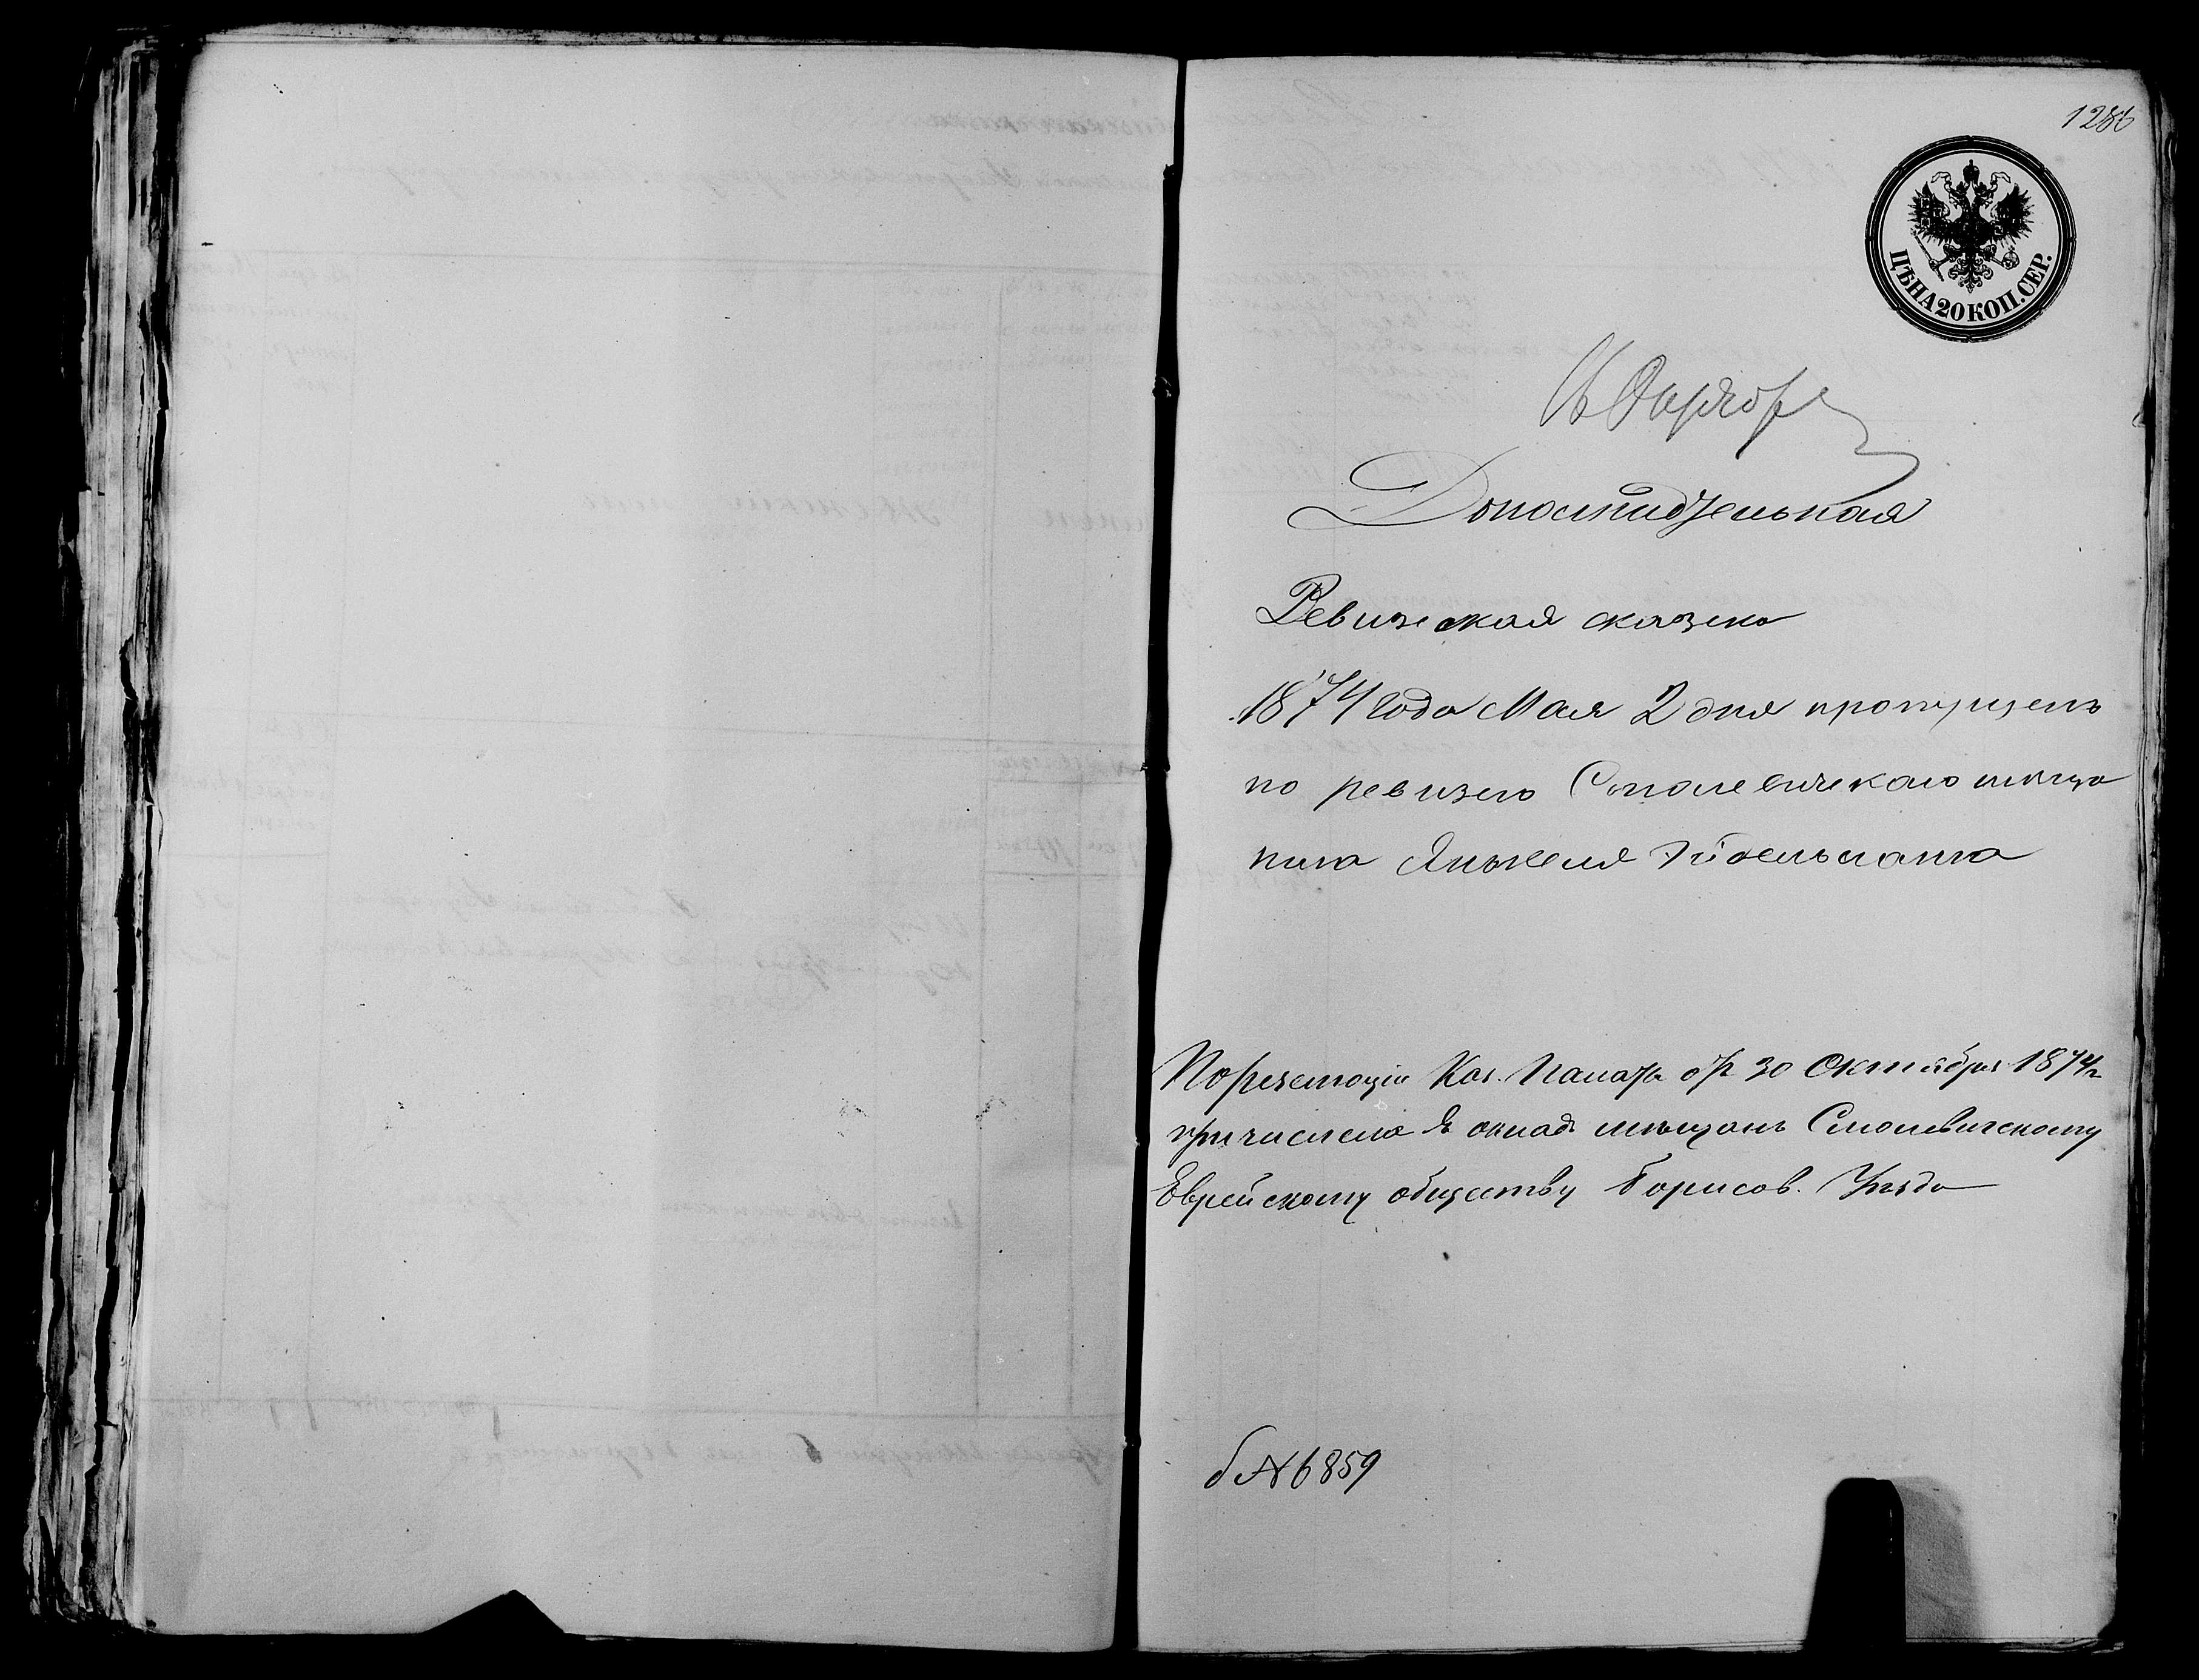 1286
ЦѢНА 20 КОП. СЕР.
Дополнительная
Ревизская сказка
1874 года Мая 2 дня пропущенъ
по ревизіи Смолевичскаго мѣща
нина Янкеля Эйдельмана
По резолюціи Каз. Палаты отъ 30 Октября 1874 г
причислена въ окладъ мѣщанъ Смолевичскому
Еврейскому обществу Борисов. Уѣзда
№ 6859